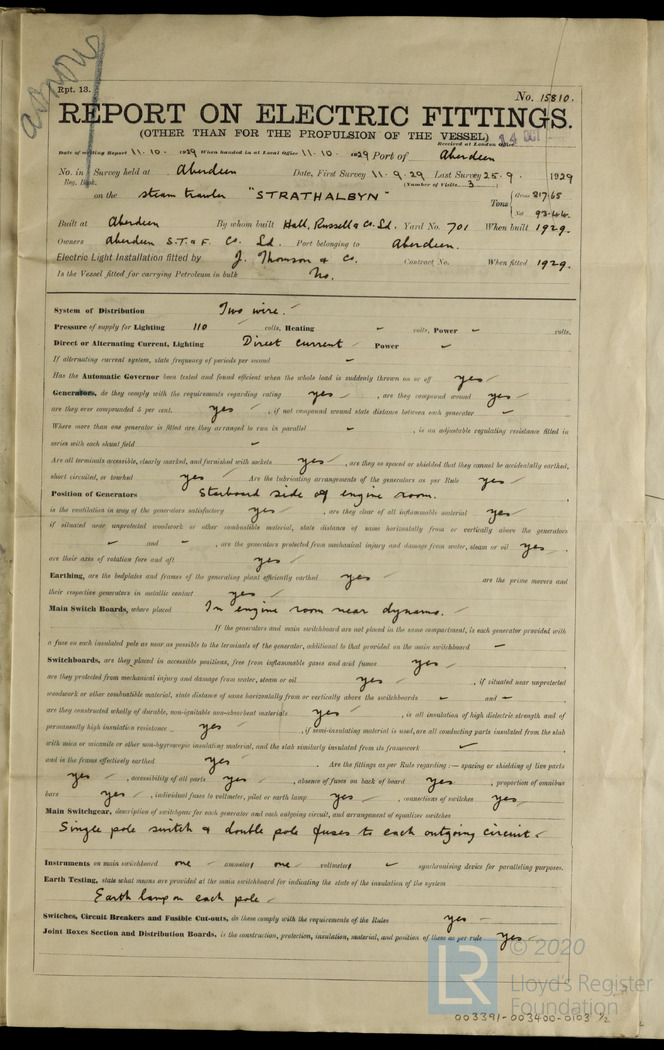 Rpt. 13.
No. 15810.
REPORT ON ELECTRIC FITTINGS.
(OTHER THAN FOR THE PROPULSION OF THE VESSEL)
Received at London Office 14 OCT
Date of writing Report 11.10.1929 When handed in at Local Office 11.10.1929 Port of Aberdeen
No. in Survey held at Aberdeen Date, First Survey 11.9.29 Last Survey 25.9. 1929
Reg. Book. (Number of Visits 3)
on the steam trawler "STRATHALBYN" Tons { Gross 217.65
Net 93.44
Built at Aberdeen By whom built Hall, Russell & Co. Ld. Yard No. 701 When built 1929.
Owners Aberdeen S.T. & F. Co. Ld. Port belonging to Aberdeen.
Electric Light Installation fitted by J. Thomson & Co. Contract No. When fitted 1929.
Is the Vessel fitted for carrying Petroleum in bulk No.
System of Distribution Two wire.
Pressure of supply for Lighting 110 volts, Heating – volts, Power – volts.
Direct or Alternating Current, Lighting Direct current Power –
If alternating current system, state frequency of periods per second –
Has the Automatic Governor been tested and found efficient when the whole load is suddenly thrown on or off yes
Generators, do they comply with the requirements regarding rating yes, are they compound wound yes
are they over compounded 5 per cent. yes, if not compound wound state distance between each generator –
Where more than one generator is fitted are they arranged to run in parallel –, is an adjustable regulating resistance fitted in
series with each shunt field –
Are all terminals accessible, clearly marked, and furnished with sockets yes, are they so spaced or shielded that they cannot be accidentally earthed,
short circuited, or touched yes Are the lubricating arrangements of the generators as per Rule yes
Position of Generators Starboard side of engine room.
is the ventilation in way of the generators satisfactory yes, are they clear of all inflammable material yes
if situated near unprotected woodwork or other combustible material, state distance of same horizontally from or vertically above the generators
– and –, are the generators protected from mechanical injury and damage from water, steam or oil yes.
are their axes of rotation fore and aft yes
Earthing, are the bedplates and frames of the generating plant efficiently earthed yes are the prime movers and
their respective generators in metallic contact yes
Main Switch Boards, where placed In engine room near dynamo.
If the generators and main switchboard are not placed in the same compartment, is each generator provided with
a fuse on each insulated pole as near as possible to the terminals of the generator, additional to that provided on the main switchboard –
Switchboards, are they placed in accessible positions, free from inflammable gases and acid fumes yes
are they protected from mechanical injury and damage from water, steam or oil yes, if situated near unprotected
woodwork or other combustible material, state distance of same horizontally from or vertically above the switchboards – and –
are they constructed wholly of durable, non-ignitable non-absorbent materials yes, is all insulation of high dielectric strength and of
permanently high insulation resistance yes, if semi-insulating material is used, are all conducting parts insulated from the slab
with mica or micanite or other non-hygroscopic insulating material, and the slab similarly insulated from its framework –,
and is the frame effectively earthed yes Are the fittings as per Rule regarding :— spacing or shielding of live parts
yes, accessibility of all parts yes, absence of fuses on back of board yes, proportion of omnibus
bars yes, individual fuses to voltmeter, pilot or earth lamp yes, connections of switches yes
Main Switchgear, description of switchgear for each generator and each outgoing circuit, and arrangement of equalizer switches
Single pole switch & double pole fuses to each outgoing circuit.
Instruments on main switchboard one ammeter, one voltmeter, – synchronising device for paralleling purposes.
Earth Testing, state what means are provided at the main switchboard for indicating the state of the insulation of the system
Earth lamp on each pole
Switches, Circuit Breakers and Fusible Cut-outs, do these comply with the requirements of the Rules yes
Joint Boxes Section and Distribution Boards, is the construction, protection, insulation, material, and position of these as per rule yes
LR
© 2020
Lloyd's Register
Foundation
003391-003400-0103 ½